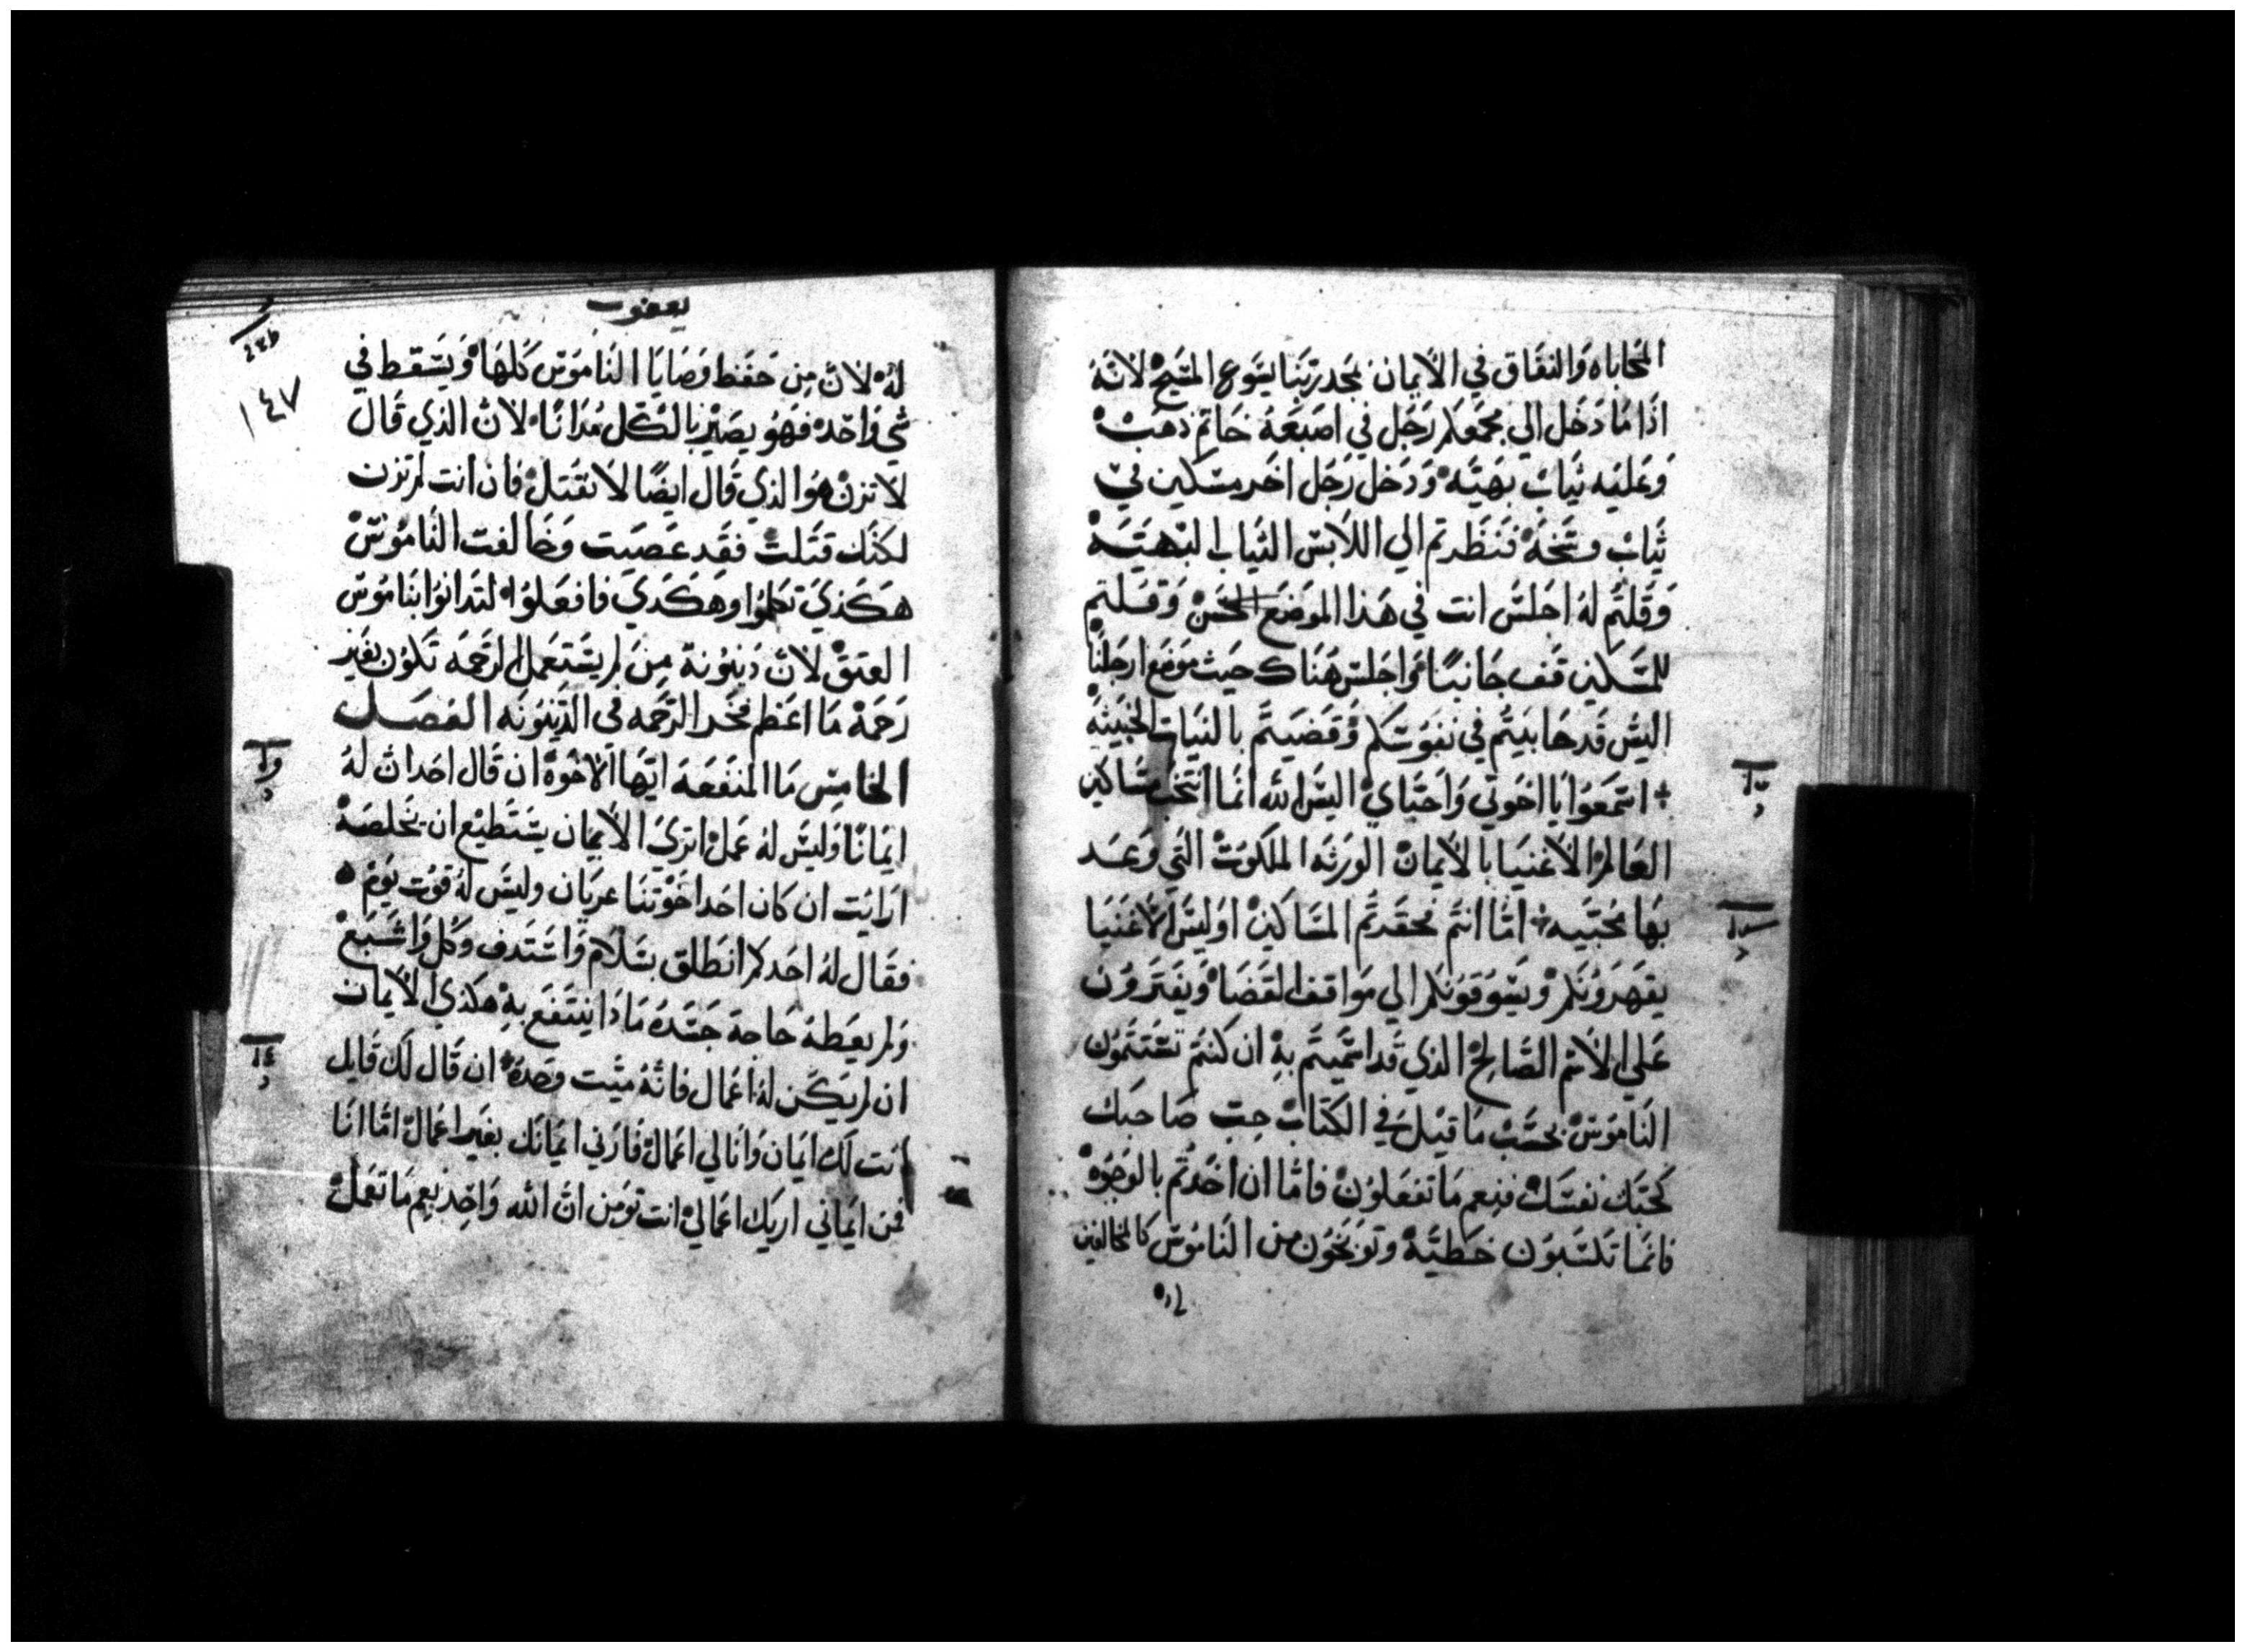 المحاباه والنفاق في الايمان بمجد ربنا يسوع المسيح لانه
اذا ما دخل الي مجمعكم رجل في اصبعه خاتم ذهب
وعليه ثياب بهيه ودخل رجل اخر مسكين في
ثياب وسخه فنظرتم الي اللابس الثياب البهيه
وقلتم له اجلس انت في هذا الموضع الحسن وقلتم
للمسكين قف جانبًا او اجلس هناك حيث موضع ارجلنا
اليس قد حابيتم في نفوسكم وقضيتم بالنيات الخبيثه
استمعوا يا اخوتي واحباي اليس الله انما انتخب مساكين
العالم الاغنيا بالايمان الورثه الملكوت التي وعد
بها محبيه اما انتم فحقرتم المساكين اوليس الاغنيا
يقهرونكم ويسوقونكم الي مواقف القضا ويفترون
علي الاسم الصالح الذي قد اسميتم به ان كنتم تستتمون
الناموس بحسب ما قيل في الكتاب حب صاحبك
كحبك نفسك فنعم ما تفعلون فاما ان اخدتم بالوجوه
فانما تكسبون خطيه وتوبخون من الناموس كالمخالفين
له
يعقوب
١٤٧
له لان من حفظ وصايا الناموس كلها ويسقط في
شي واحد فهو يصير بالكل مدانا لان الذي قال
لا تزن هو الذي قال ايضًا لا تقتل فان انت لم تزن
لكنك قتلت فقد عصيت وخالفت الناموس
هكذي تكلموا وهكدي فافعلوا لتدانوا بناموس
العتق لان دينونة من لم يستعمل الرحمه تكون بغير
رحمة ما اعظم فخر الرحمه في الدينونه الفصل
الخامس ما المنفعه ايها الاخوه ان قال احد ان له
ايمانا وليس له عمل اتري الايمان يستطيع ان يخلصه
ارايت ان كان احد اخوتنا عريان وليس له قوت يوم
فقال له احدكم انطلق بسلام واستدف وكل واشبع
ولم يعطه حاجة جسده ماذا ينتفع به هكذي الايمان
ان لم يكن له اعمال فانه ميت وحده ان قال لك قايل
انت لك ايمان وانا لي اعمال فارني ايمانك بغير اعمال اما انا
فمن ايماني اريك اعمالي انت تومن ان الله واحد نعم ما تعمل